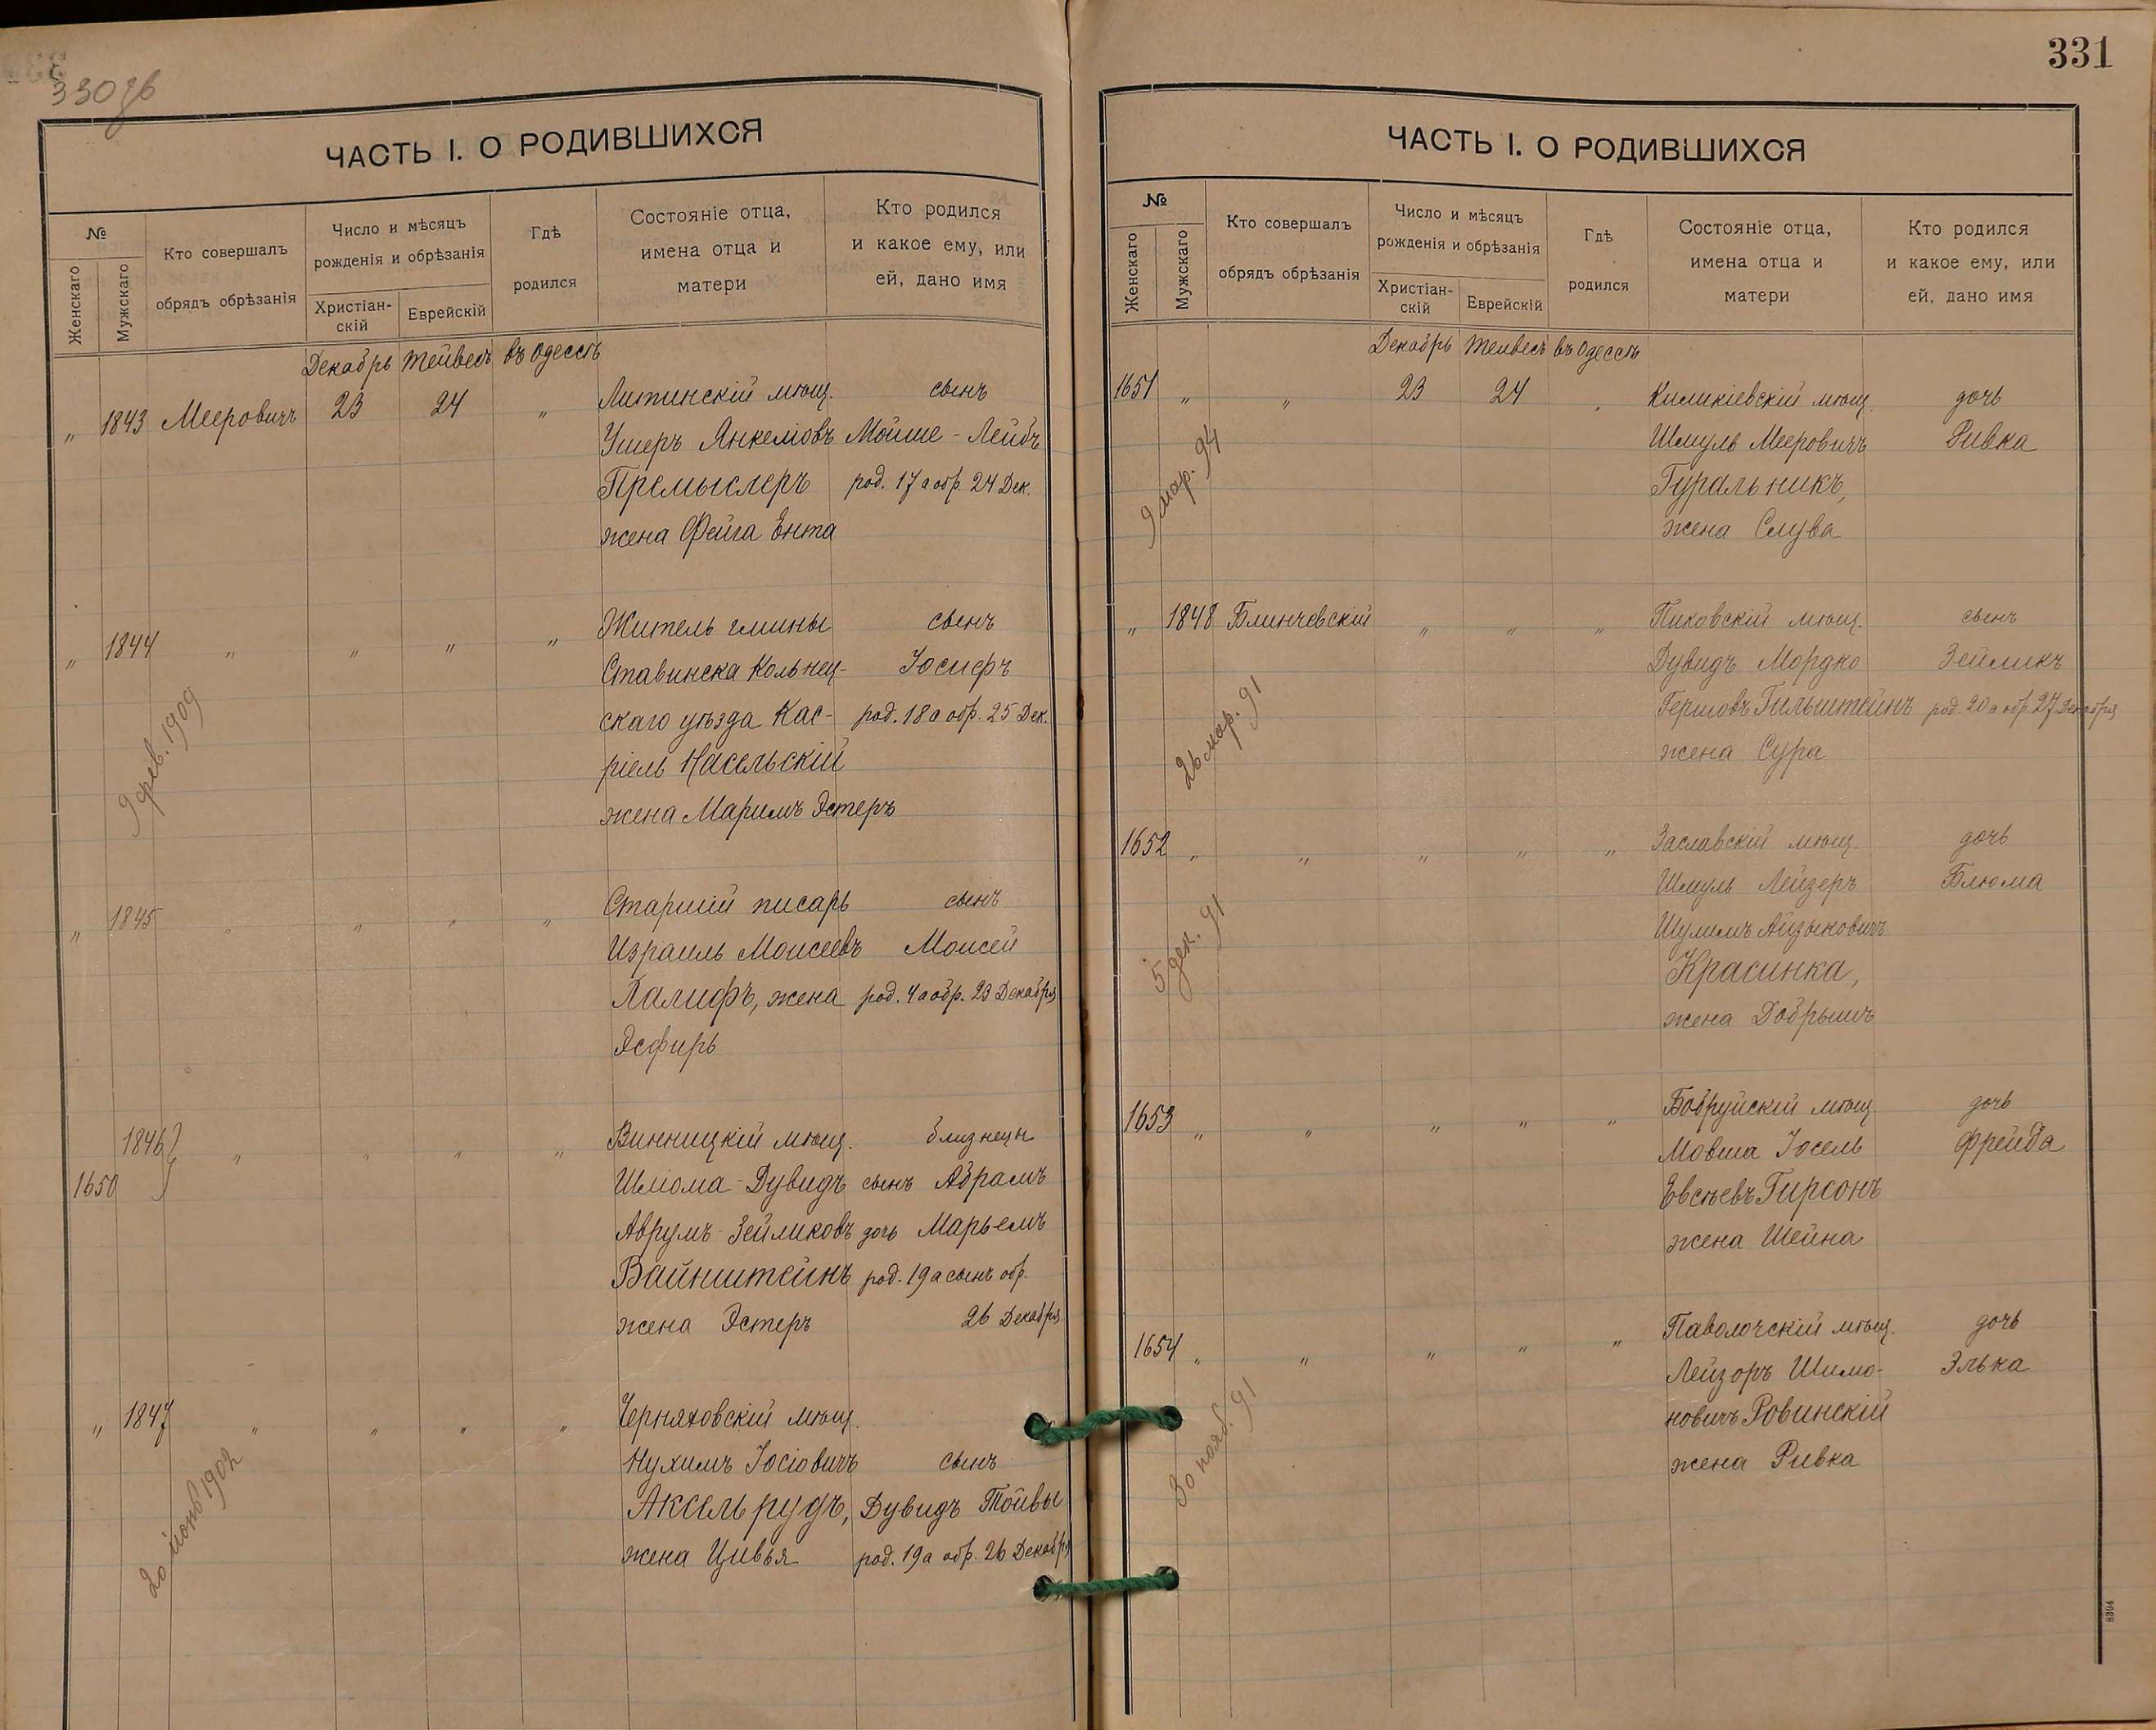 330 зв
ЧАСТЬ I. О РОДИВШИХСЯ
№
Женскаго
Мужскаго
Кто совершалъ
обрядъ обрѣзанія
Число и мѣсяцъ
рожденія и обрѣзанія
Христіан-
скій
Еврейскій
Гдѣ
родился
Состояніе отца,
имена отца и
матери
Кто родился
и какое ему, или
ей, дано имя
Декабрь Тейвесъ въ Одессѣ
„ 1843 Мееровичъ 23 24 „ Литинскій мѣщ. сынъ
Ушеръ Янкеліовъ Мойше-Лейбъ
Премыслеръ род. 17 а обр. 24 Дек.
жена Фейга Ента
„ 1844 „ „ „ „ Житель гмины сынъ
Ставинска Кольнец- Іосифъ
скаго уѣзда Кас- род. 18 а обр. 25 Дек.
ріель Насельскій
жена Маримъ Эстеръ
9 фев. 1909
„ 1845 „ „ „ „ Старшій писарь сынъ
Израиль Моисеевъ Моисей
Халифъ, жена род. 4 а обр. 23 Декабря
Эсфирь
1846 „ „ „ „ Винницкій мѣщ. близнецы
1650 Шліома-Дувидъ сынъ Абрамъ
Аврумъ-Зейликовъ дочь Марьемъ
Вайнштейнъ род. 19 а сынъ обр.
жена Эстеръ 26 Декабря
„ 1847 „ „ „ „ Черняховскій мѣщ.
Нухимъ Іосіовичъ сынъ
Аксельрудъ, Дувидъ Тойвы
жена Цивья род. 19 а обр. 26 Декабря
20 іюнь 1902
331
ЧАСТЬ I. О РОДИВШИХСЯ
№
Женскаго
Мужскаго
Кто совершалъ
обрядъ обрѣзанія
Число и мѣсяцъ
рожденія и обрѣзанія
Христіан-
скій
Еврейскій
Гдѣ
родился
Состояніе отца,
имена отца и
матери
Кто родился
и какое ему, или
ей, дано имя
Декабрь Тейвесъ въ Одессѣ
1651 „ „ 23 24 „ Киликіевскій мѣщ. дочь
Шмуль Мееровичъ Ривка
Гуральникъ,
жена Слува
9 мар. 94
„ 1848 Блинчевскій „ „ „ Пиковскій мѣщ. сынъ
Дувидъ Мордко Зейликъ
Гершовъ Гильштейнъ род. 20 а обр. 27 Декабря
жена Сура
26 мар. 91
1652 „ „ „ „ „ Заславскій мѣщ. дочь
Шмуль Лейзеръ Блюма
Шулимъ Айзыковичъ
Красинка,
жена Добрышъ
5 дек. 91
1653 „ „ „ „ „ Бобруйскій мѣщ. дочь
Мовша Іосель Фрейда
Евсѣевъ Гирсонъ
жена Шейна
1654 „ „ „ „ „ Паволочскій мѣщ. дочь
Лейзоръ Шимо- Элька
новичъ Ровинскій
жена Ривка
30 нояб. 91
8394